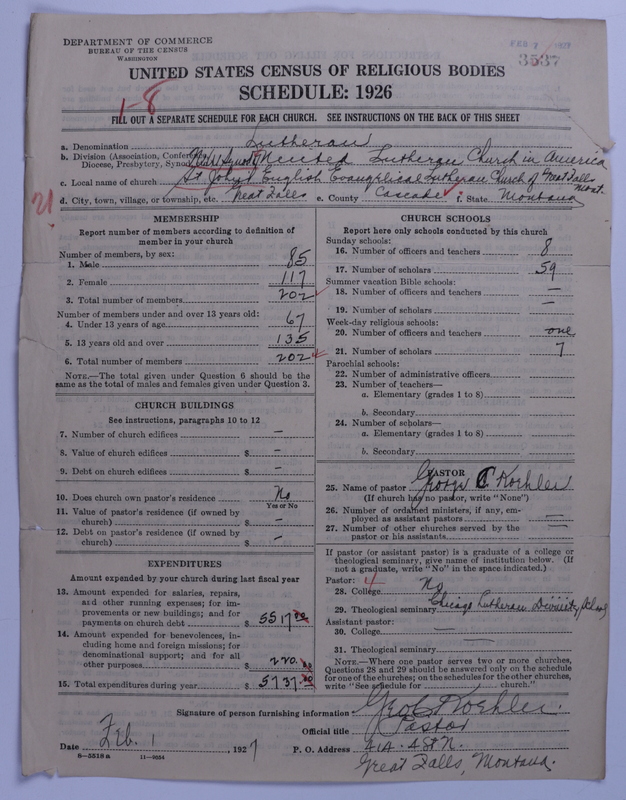 DEPARTMENT OF COMMERCE
BUREAU OF THE CENSUS
WASHINGTON
FEB 7 1927
3537
UNITED STATES CENSUS OF RELIGIOUS BODIES
SCHEDULE: 1926
1-8
FILL OUT A SEPARATE SCHEDULE FOR EACH CHURCH. SEE INSTRUCTIONS ON THE BACK OF THIS SHEET
a. Denomination Lutheran
b. Division (Association, Confer
Diocese, Presbytery, Synod United Lutheran Church in America
c. Local name of church St John's English Evangelical Lutheran Church of Great Falls Mont.
21
d. City, town, village, or township, etc. Great Falls e. County Cascade f. State Montana
MEMBERSHIP
Report number of members according to definition of
member in your church
Number of members, by sex:
1. Male 85
2. Female 117
3. Total number of members 202
Number of members under and over 13 years old:
4. Under 13 years of age 67
5. 13 years old and over 135
6. Total number of members 202
NOTE.—The total given under Question 6 should be the
same as the total of males and females given under Question 3.
CHURCH BUILDINGS
See instructions, paragraphs 10 to 12
7. Number of church edifices —
8. Value of church edifices $ —
9. Debt on church edifices $ —
10. Does church own pastor's residence No
Yes or No
11. Value of pastor's residence (if owned by
church) $ —
12. Debt on pastor's residence (if owned by
church) $ —
EXPENDITURES
Amount expended by your church during last fiscal year
13. Amount expended for salaries, repairs,
and other running expenses; for im-
provements or new buildings; and for
payments on church debt $ 5517.00
14. Amount expended for benevolences, in-
cluding home and foreign missions; for
denominational support; and for all
other purposes $ 220.00
15. Total expenditures during year $ 5737.00
CHURCH SCHOOLS
Report here only schools conducted by this church
Sunday schools:
16. Number of officers and teachers 8
17. Number of scholars 59
Summer vacation Bible schools:
18. Number of officers and teachers —
19. Number of scholars —
Week-day religious schools:
20. Number of officers and teachers one
21. Number of scholars 7
Parochial schools:
22. Number of administrative officers
23. Number of teachers—
a. Elementary (grades 1 to 8)
b. Secondary
24. Number of scholars—
a. Elementary (grades 1 to 8)
b. Secondary
PASTOR
25. Name of pastor George C. Koehler
(If church has no pastor, write "None")
26. Number of ordained ministers, if any, em-
ployed as assistant pastors —
27. Number of other churches served by the
pastor or his assistants —
If pastor (or assistant pastor) is a graduate of a college or
theological seminary, give name of institution below. (If
not a graduate, write "No" in the space indicated.)
Pastor: 4
28. College No
29. Theological seminary Chicago Lutheran Divinity School
Assistant pastor:
30. College —
31. Theological seminary
NOTE.—Where one pastor serves two or more churches,
Questions 28 and 29 should be answered only on the schedule
for one of the churches; on the schedules for the other churches,
write "See schedule for church."
Signature of person furnishing information Geo C Koehler.
Official title Pastor
Date Feb. 1, 1927 P. O. Address 414 . 4 St N.
8—5518 a 11—9664
Great Falls, Montana.